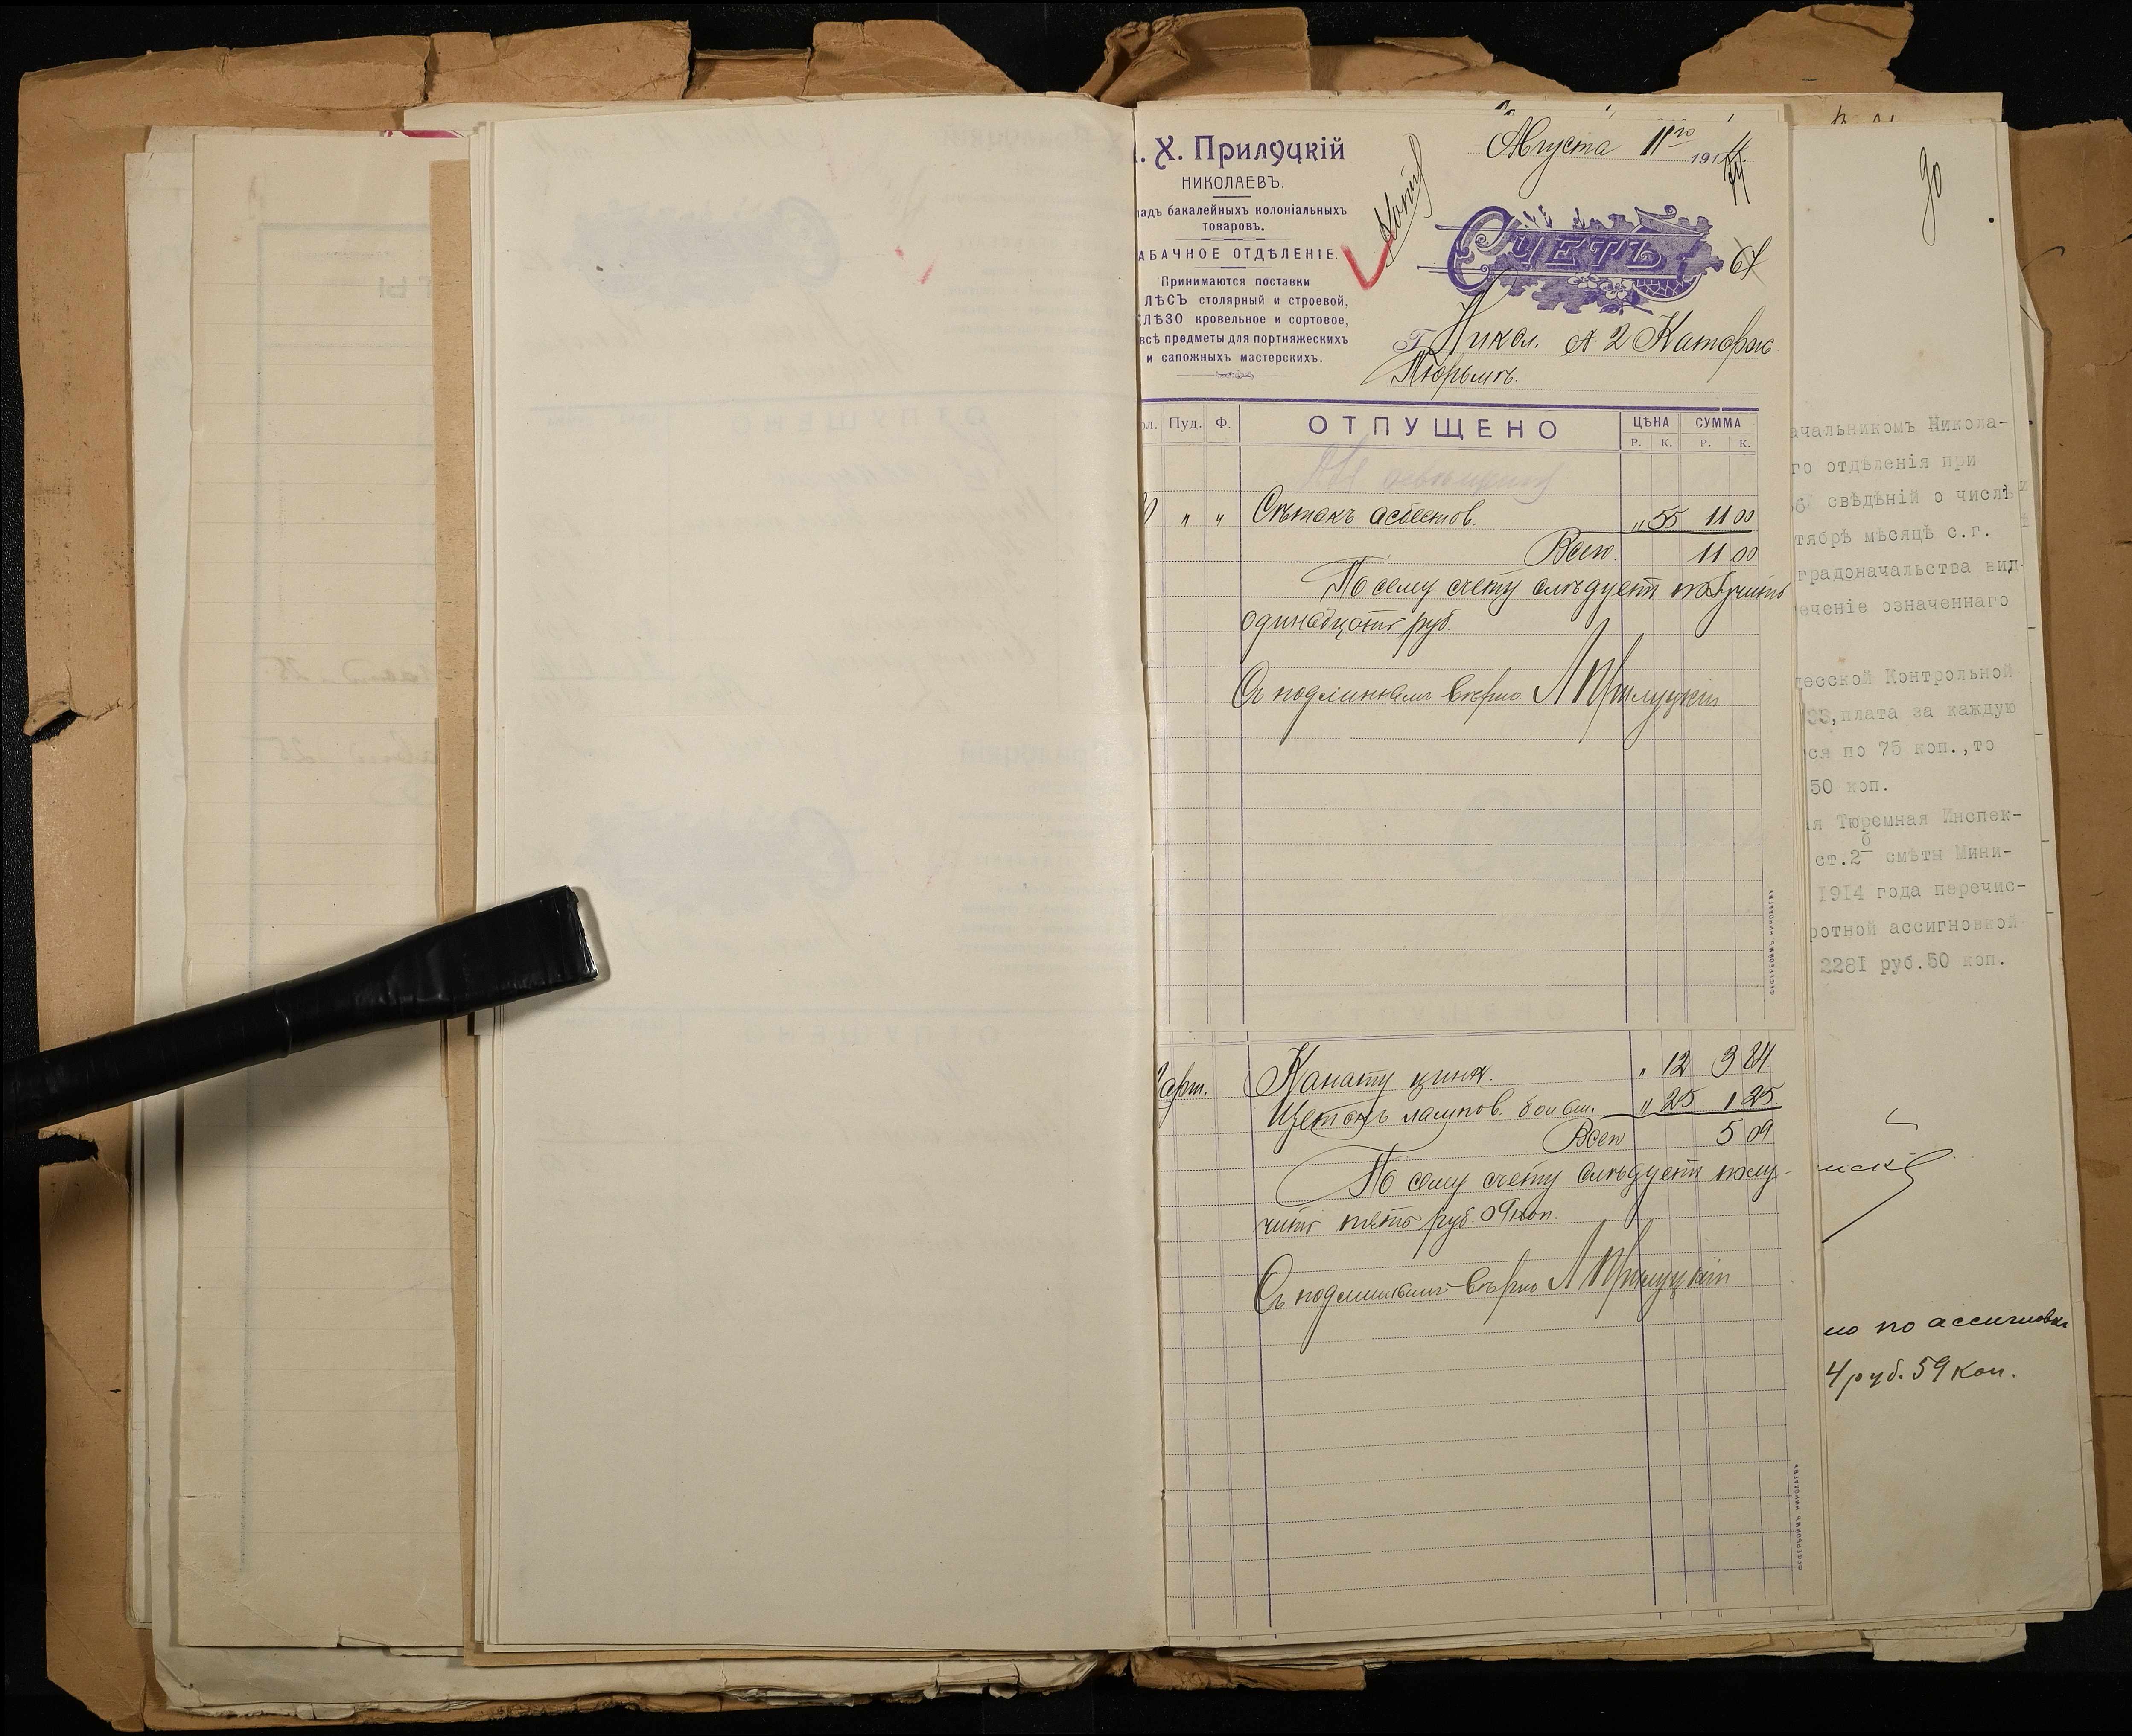 . Х. Прилуцкій
НИКОЛАЕВЪ.
ладъ бакалейныхъ колоніальныхъ
товаровъ.
АБАЧНОЕ ОТДѢЛЕНІЕ.
Принимаются поставки
ЛѢСЪ столярный и строевой,
ЛѢЗО кровельное и сортовое,
всѣ предметы для портняжескихъ
и сапожныхъ мастерскихъ.
Копія
Августа 11го 1914
СЧЕТЪ
67
Г. Никол. № 2 Каторжн
Тюрьмѣ.
ол. Пуд. Ф. ОТПУЩЕНО ЦѢНА СУММА
Р. К. Р. К.
0 " " Сѣтокъ асбестов. " 55 11 00
Всего 11 00
По сему счету слѣдуетъ получить
одинадцать руб.
Съ подлиннымъ вѣрно Л Прилуцкій
арш. Канату цинк. " 12 3 84
Щетокъ лампов. больш. " 25 1 25
Всего 5 09
По сему счету слѣдуетъ полу-
чить пять руб. 09 коп.
Съ подлиннымъ вѣрно Л Прилуцкій
90
ачальникомъ Никола-
го отдѣленія при
свѣдѣній о числѣ
тябрѣ мѣсяцѣ с.г.
градоначальства вид-
еченіе означеннаго
десской Контрольной
33, плата за каждую
ся по 75 коп., то
50 коп.
я Тюремная Инспек-
ст.2 б смѣты Мини-
1914 года перечис-
ротной ассигновкой
2281 руб.50 коп.
но по ассигновкѣ
4 руб. 59 коп.